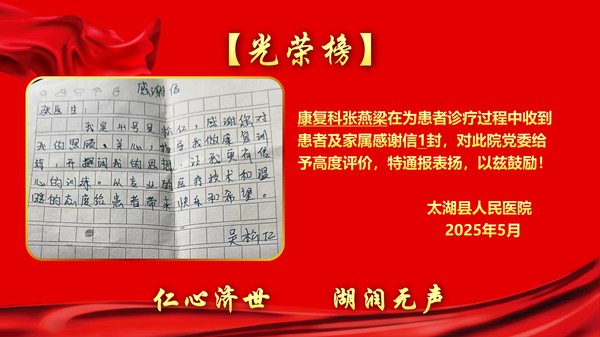 【光荣榜】
感谢信
张医生：
我是41号吴松仁，感谢您对
我的照顾、关心，
练，开拓阔我的思想，让我更有信
心的训练。从专业的医疗技术和温
暖的态度给患者带来快乐和希望。
吴松仁
康复科张燕梁在为患者诊疗过程中收到
患者及家属感谢信1封，对此院党委给
予高度评价，特通报表扬，以兹鼓励！
太湖县人民医院
2025年5月
仁心济世 湖润无声